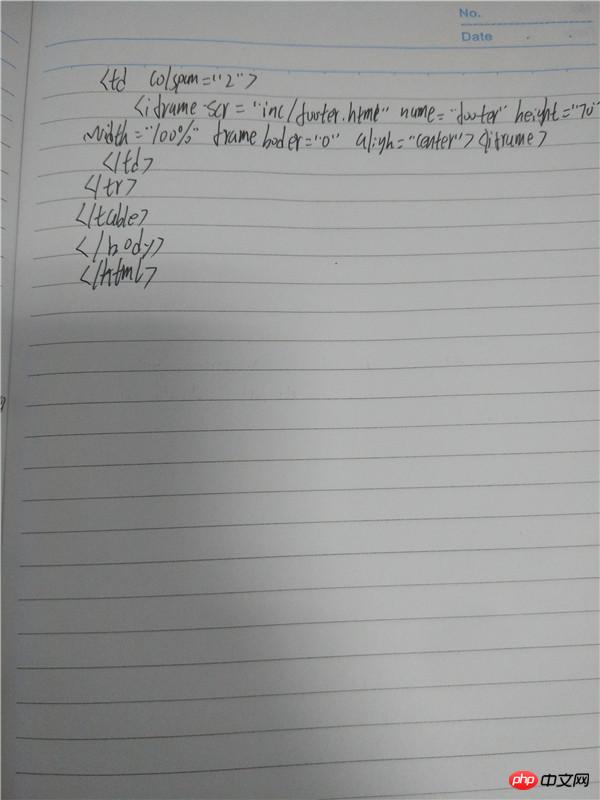 No.
Date
<td colspan="2">
<iframe scr="inc/footer.html" name="footer" height="70"
width="100%" frameboder="0" aligh="center"><iframe>
</td>
</tr>
</table>
</body>
</html>
php 中文网